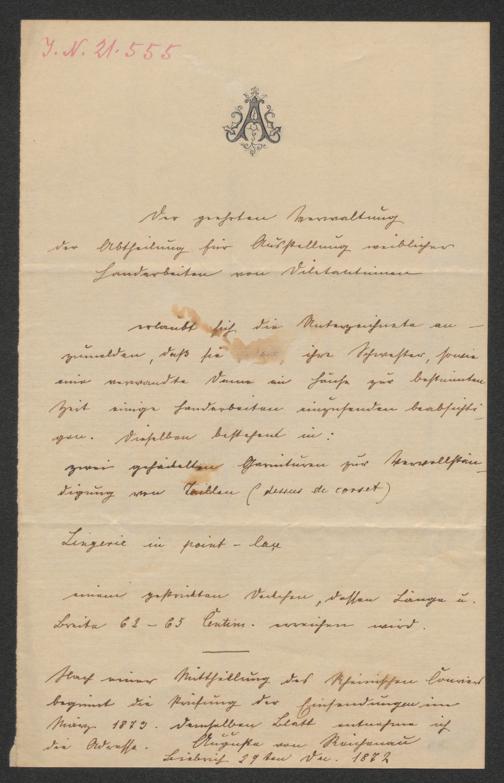 I. N. 21.555
A
Der geehrten Verwaltung
der Abtheilung für Ausstellung weiblicher
Handarbeiten von Diletantinnen
erlaubt sich die Unterzeichnete an-
zumelden, daß sie ihre Schwester, sowie
eine verwandte Dame im Hause zur bestimmten
Zeit einige Handarbeiten einzusenden beabsichti-
gen. Dieselben bestehen in:
zwei gehäkelten Garnituren zur Vervollstän-
digung von Taillen (dessus de corset)
Lingerie in point-lace
einem gestrickten Deckchen, dessen Länge u.
Breite 62-65 Centim. erreichen wird.
Nach einer Mittheilung des Rheinischen Couriers
beginnt die Prüfung der Einsendungen im
März 1873. Demselben Blatt entnehme ich
die Adresse. Auguste von Reichenau
Biebrich 29ten Dec. 1872